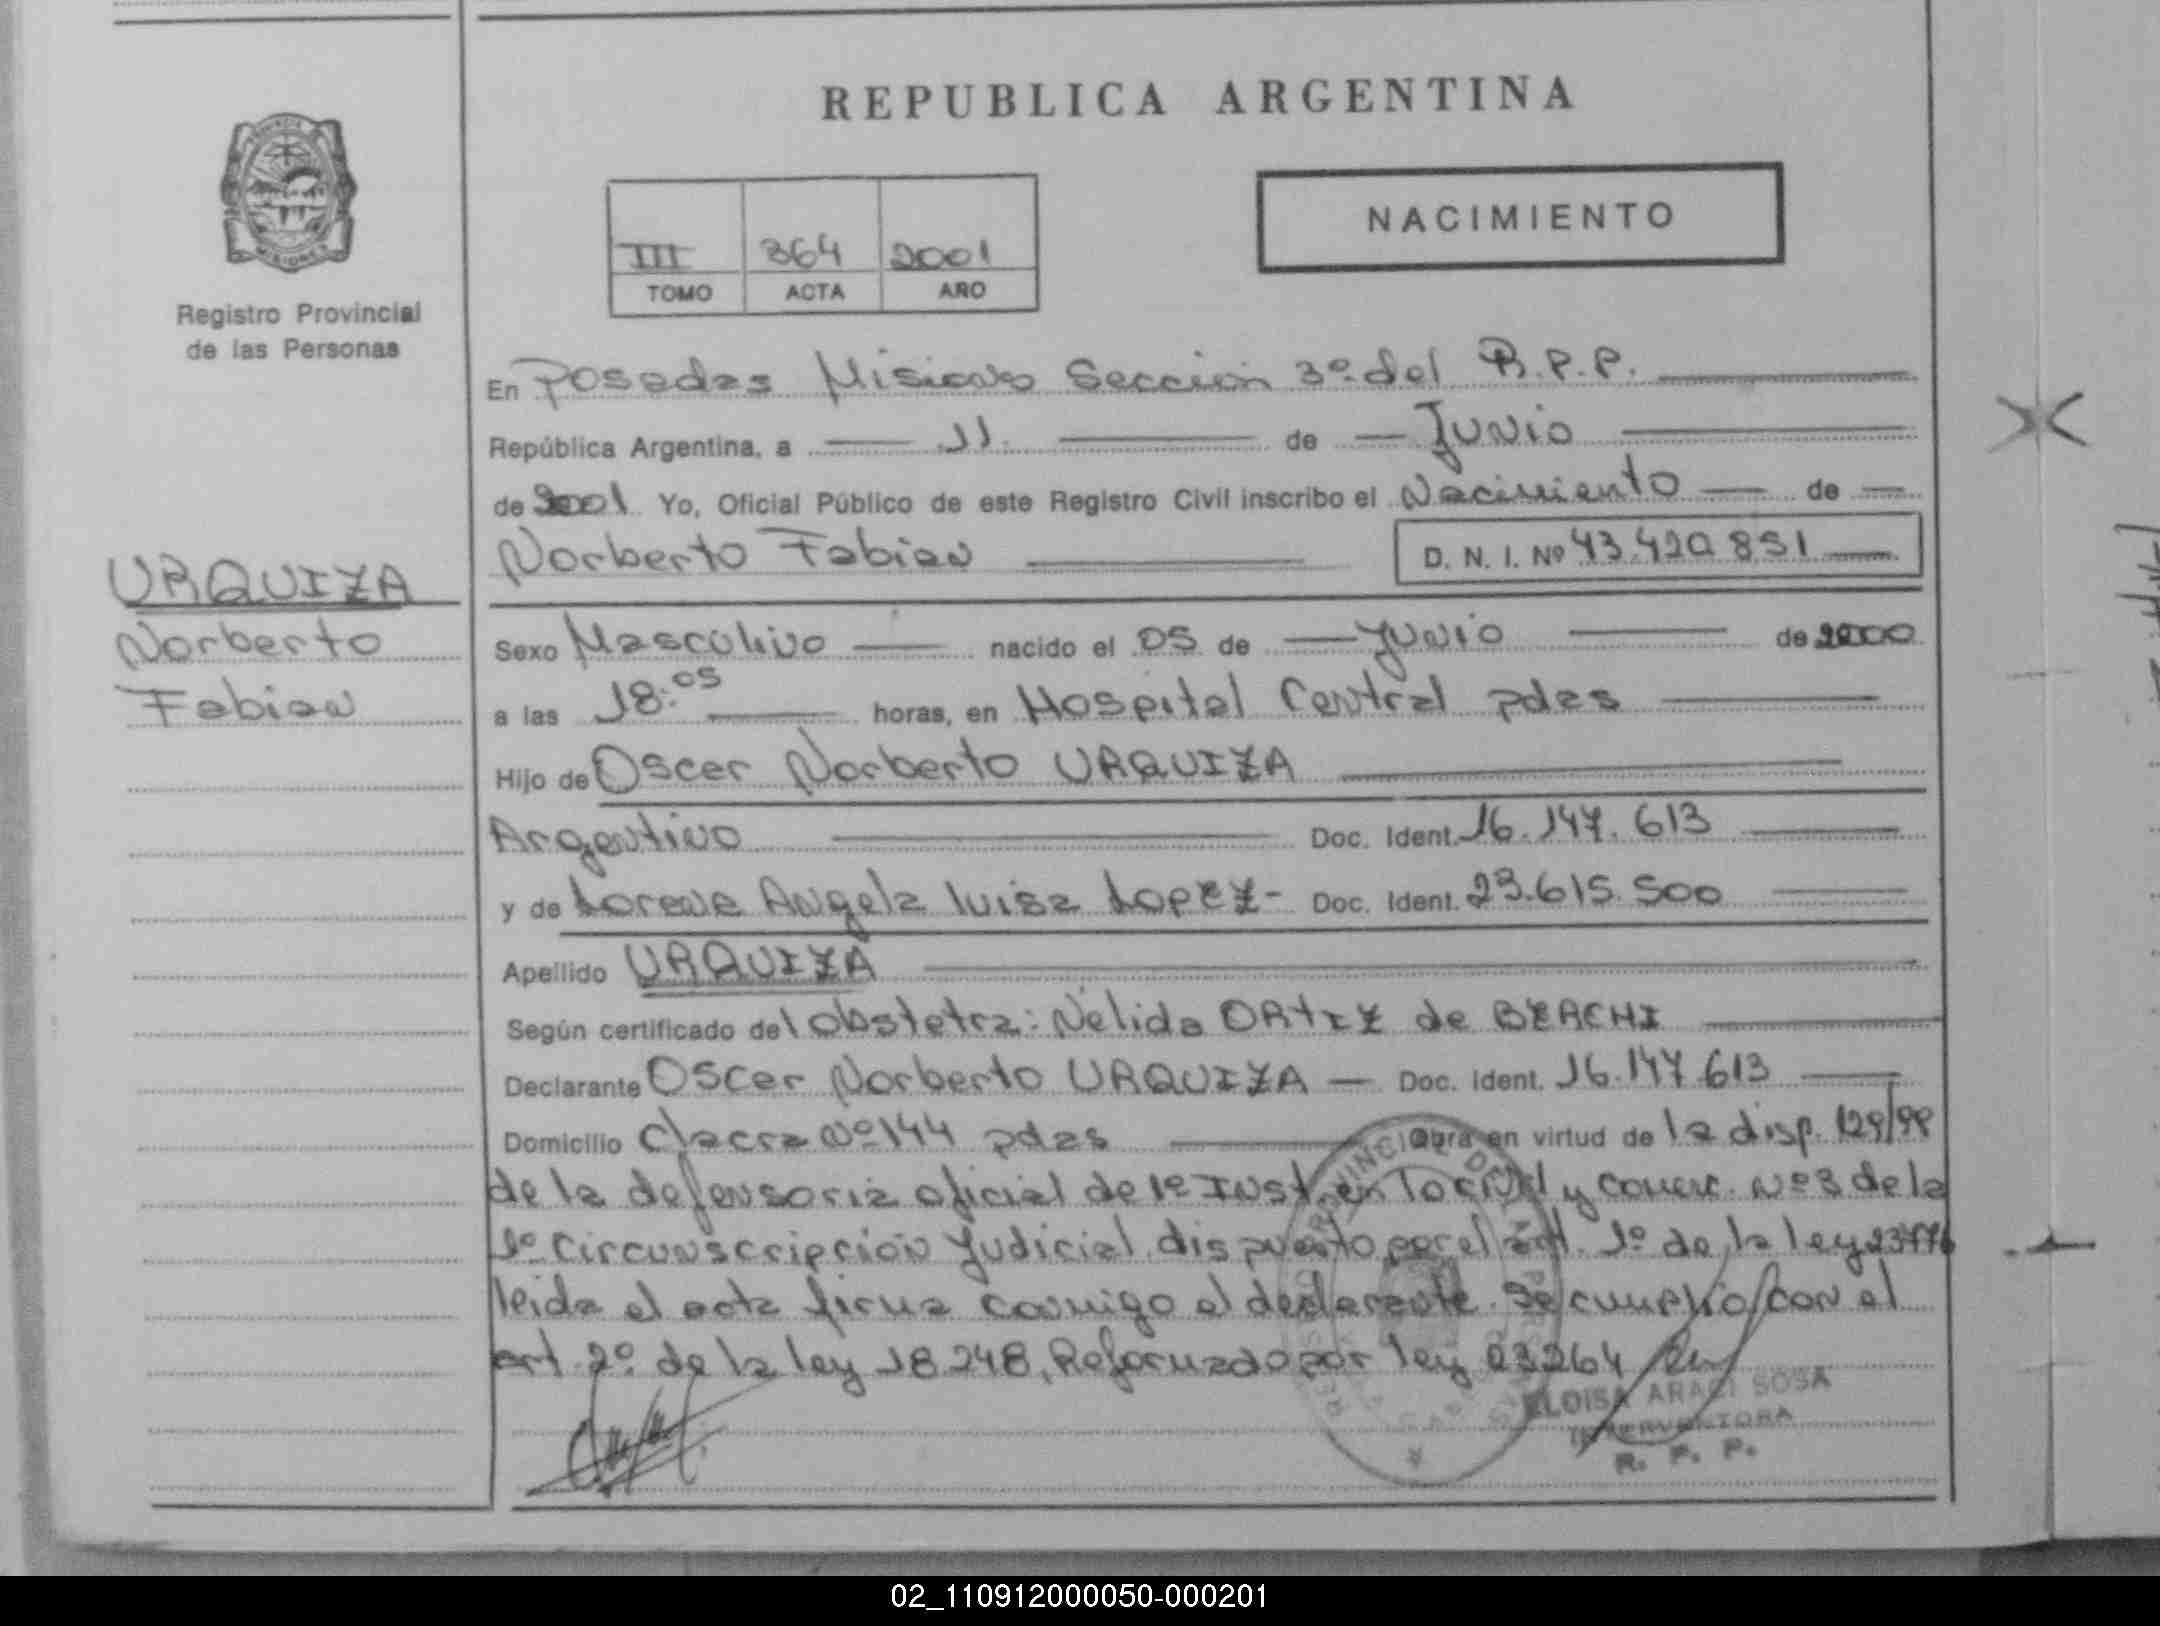 REPUBLICA ARGENTINA
NACIMIENTO
III 364 2001
TOMO ACTA AÑO
Registro Provincial
de las Personas
En Posadas Misiones Sección 3º del R.P.P.
República Argentina, a 11 de Junio
de 2001 Yo, Oficial Público de este Registro Civil inscribo el Nacimiento de
Norberto Fabian D. N. I. Nº 43.420.851
URQUIZA
Norberto
Fabian
Sexo Masculino nacido el 05 de Junio de 2000
a las 18:05 horas, en Hospital Central pdas
Hijo de Oscar Norberto URQUIZA
Argentino Doc. Ident. 16.147.613
y de Lorena Angela Luisa Lopez - Doc. Ident. 23.615.500
Apellido URQUIZA
Según certificado del Obstetra: Nelida ORTIZ de BERCHI
Declarante Oscar Norberto URQUIZA - Doc. Ident. 16.147.613
Domicilio Chacra Nº 144 pdas Obra en virtud de la disp. 129/99
de la defensoria oficial de 1º Inst. en lo civil y comerc. Nº 3 de la
1º Circunscripción Judicial, dispuesto por el art. 1º de la ley 23776
leida el acta firma conmigo el declarante. Se cumplio con el
art. 2º de la ley 18248, Reformado por ley 23264
ELOISA ARACI SOSA
INTERVENTORA
R. P. P.
02_110912000050-000201